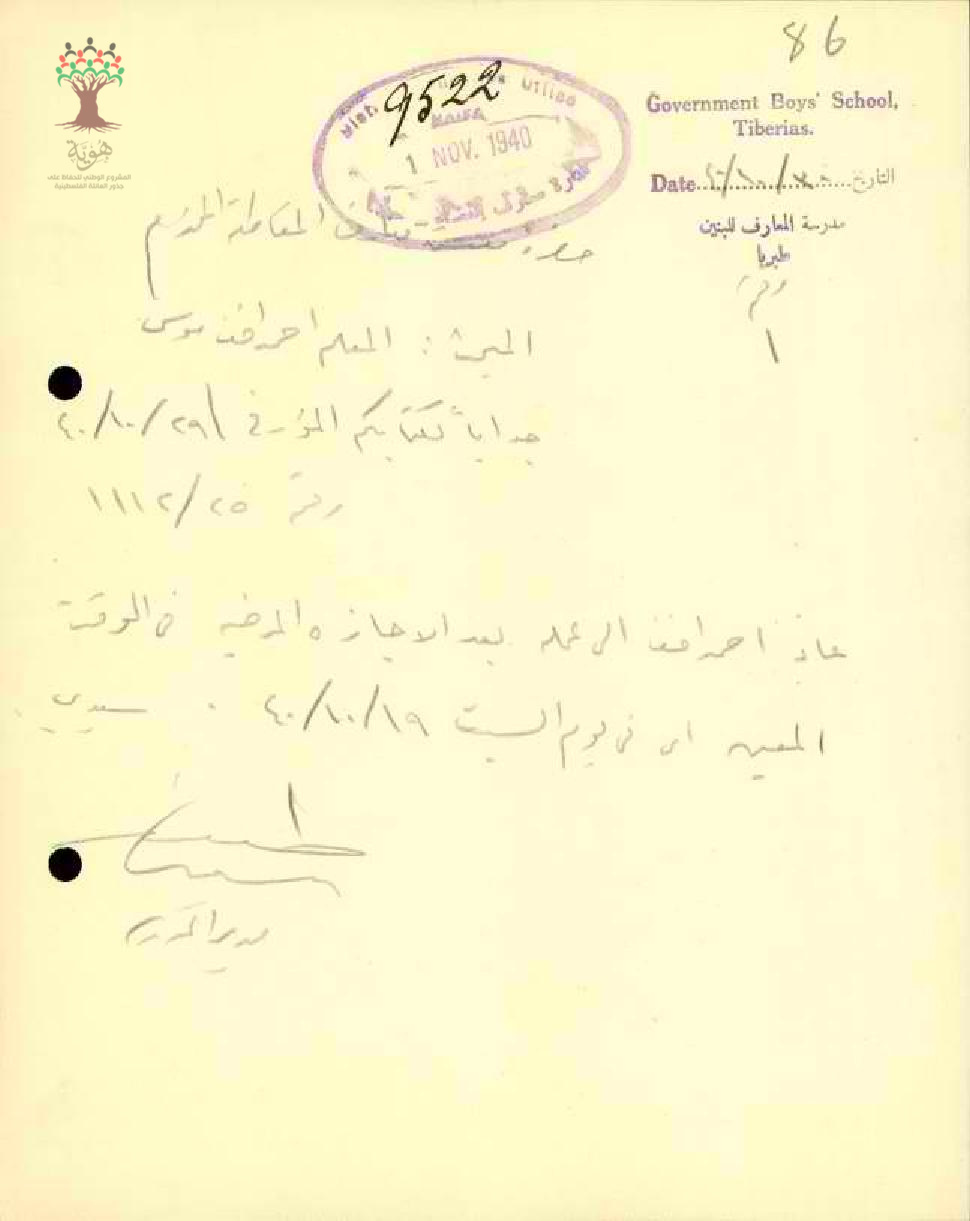 86
هوية
المشروع الوطني للحفاظ على
جذور العائلة الفلسطينية
9522
HAIFA
1 NOV. 1940
Government Boys' School,
Tiberias.
Date ٤٠/١٠/٣٠ التاريخ
مدرسة المعارف للبنين
طبريا
رقم
١
حضرة مفتش معارف المقاطعة المحترم
المبحث : المعلم احمد افندي موسى
جواباً لكتابكم المؤرخ ٤٠/١٠/٢٩
رقم ١١١٢/٢٥
عاد احمد افندي الى عمله بعد الاجازه المرضيه في الوقت
المعين اى في يوم السبت ٤٠/١٠/١٩ . سيدي
مدير المدرسة